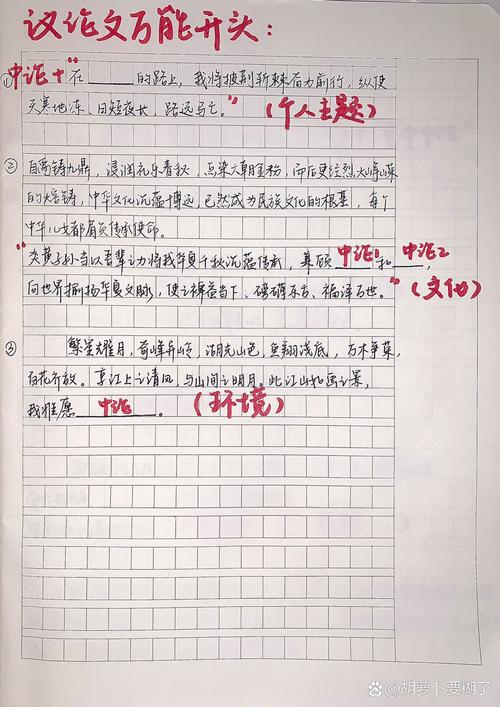 议作文万能开头:
① 中论+"在______的路上,我将披荆斩棘奋力前行,纵使
天寒地冻、日短夜长,路远马亡。"(个人主题)
② 自禹铸九鼎,浸润礼乐春秋,点染六朝金粉,而后更经烈火峰巅
的大音铸,中华文化沉蕴博远,已然成为民族文化的根基,每个
中华儿女都肩负传承使命。
"炎黄子孙当以吾辈之力将我华夏千秋沉蕴传承,算顾 中论1 和 中论2,
向世界揄扬华夏文脉,使之裨益当下、磅礴东古、福泽万世。"(文化)
③ 繁星耀月,奇峰异岭,湖光山色,鱼翔浅底,万木争荣,
百花齐放。享江上之清风,与山间之明月。此江山如画之景,
我惟愿 中论 。(环境)
胡萝卜要糊了